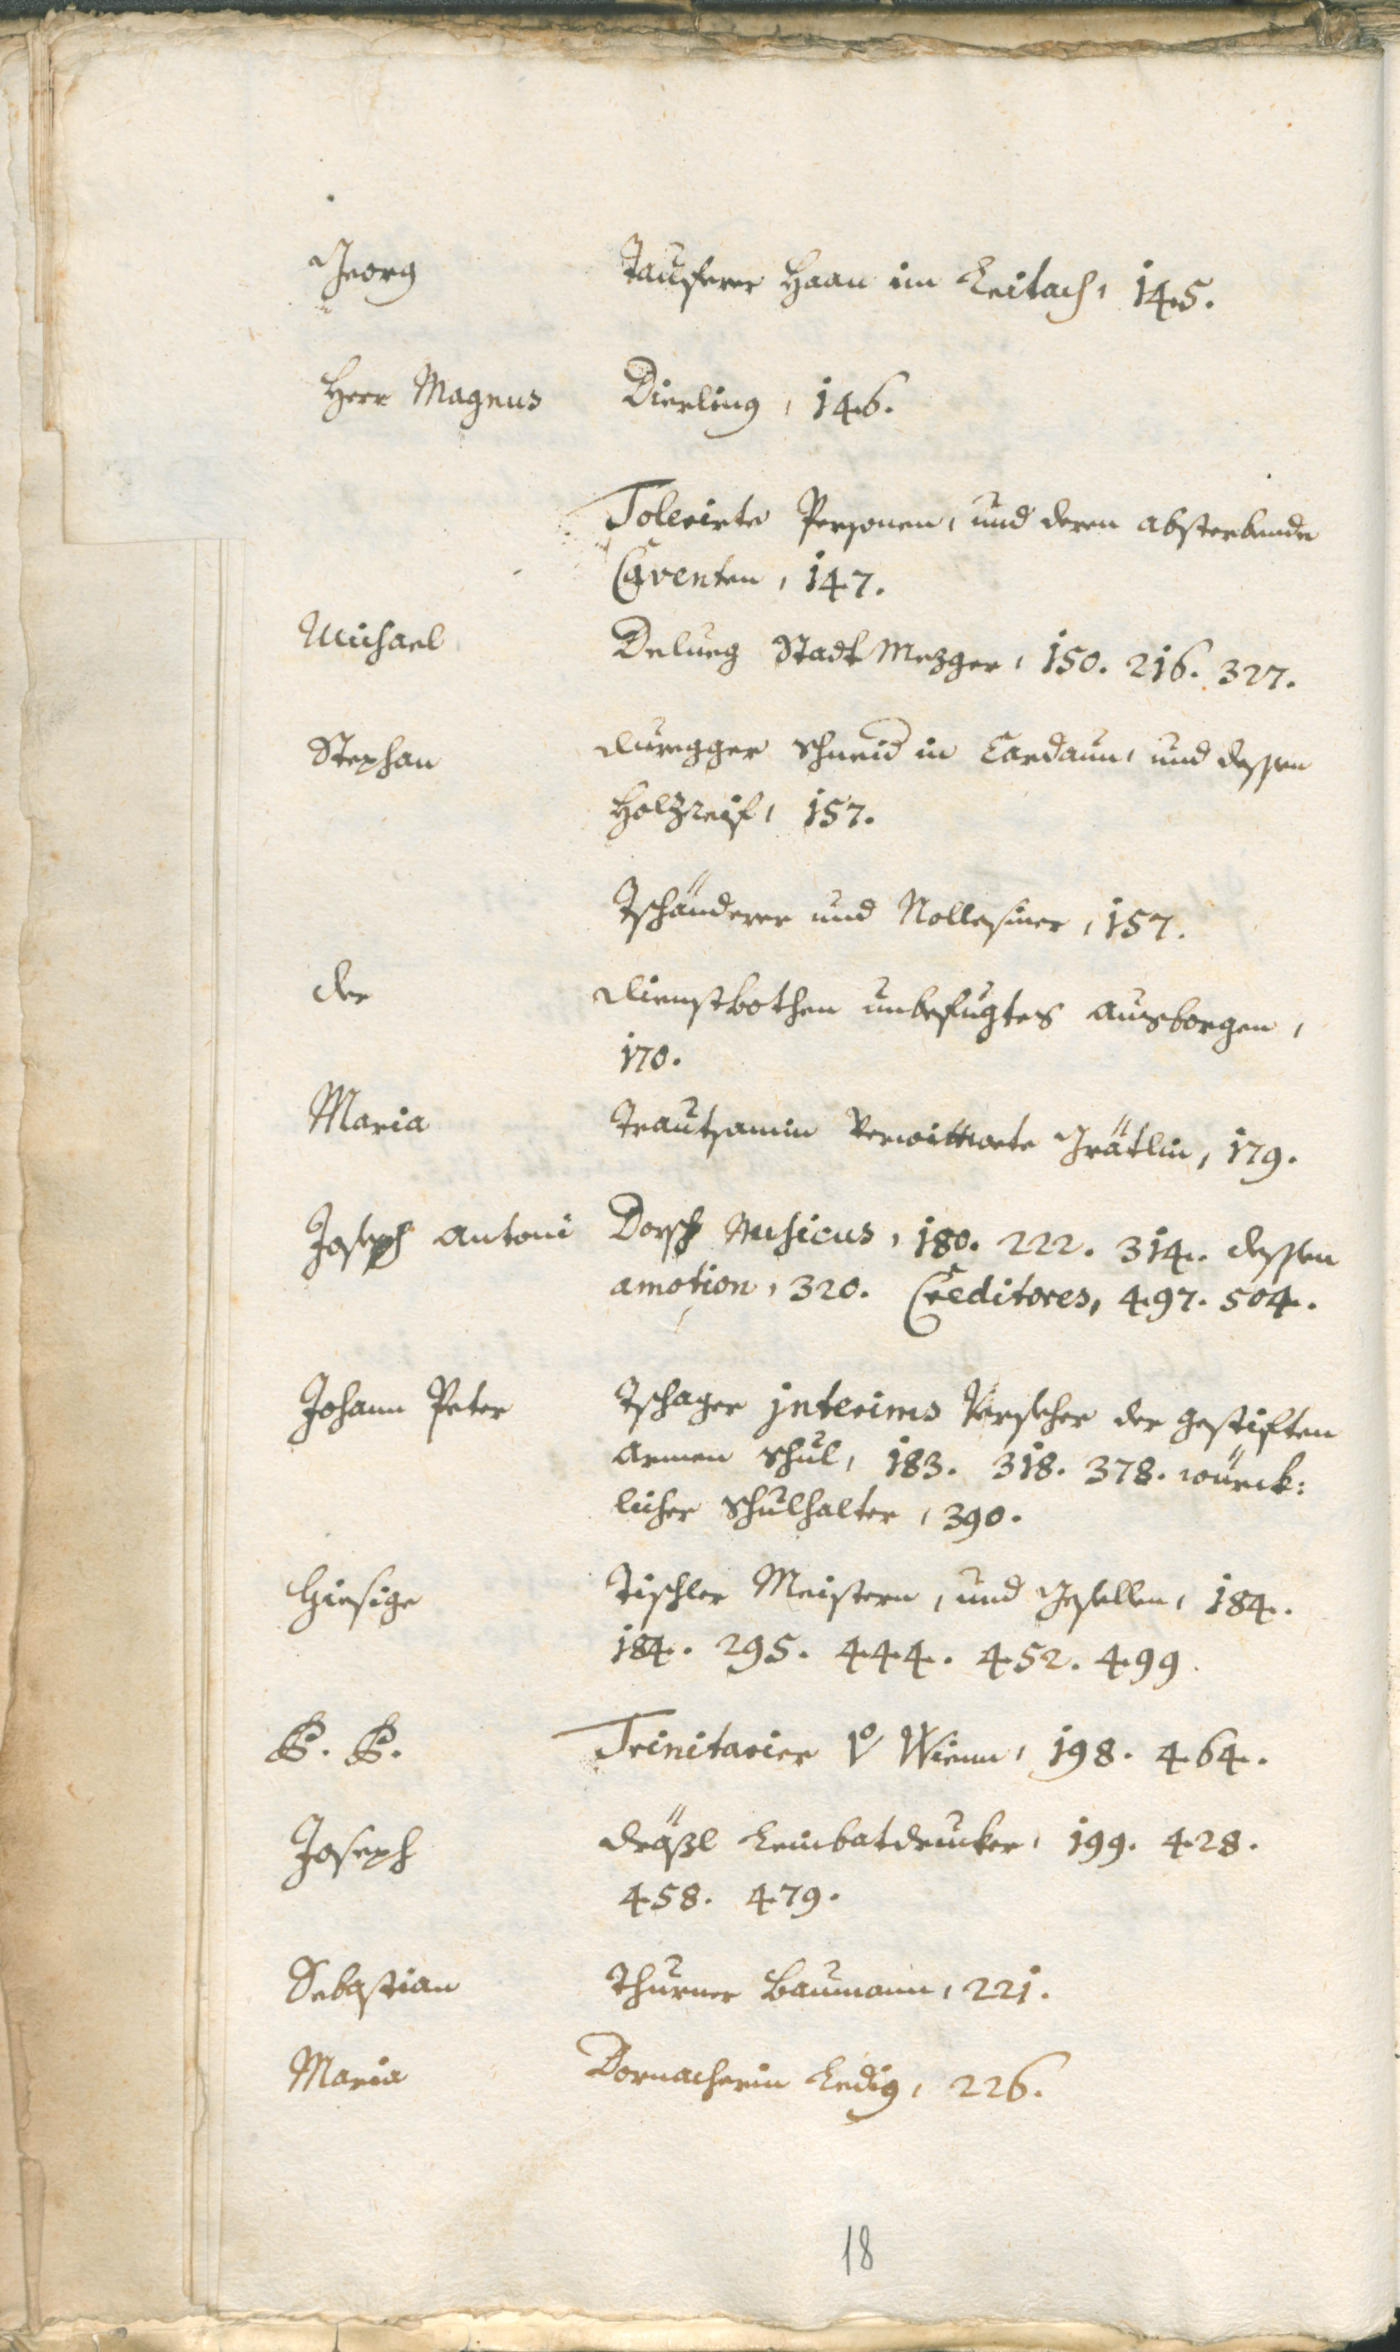 Georg Tauferer Haan im Leitach, 145.
Herr Magnus Dierling, 146.
Tolerirte Personen, und deren absterbende
Caventen, 147.
Michael Delueg Stadt Mezger, 150. 216. 327.
Stephan duregger Schmid in Cardaun, und dessen
Holzreiß, 157.
Tschänderer und Nollesiner, 157.
der dienstbothen unbefugtes ausborgen,
170.
Maria Trautsamin Verwittwete Grätlin, 179.
Joseph Antoni Dosch Musicus, 180. 222. 314. dessen
amotion, 320. Creditores, 497. 504.
Johann Peter Tschager interims Verseher der gestiften
armen Schul, 183. 318. 378. würck:
licher Schulhalter, 390.
Hiesige Tischler Meistern, und Gesellen, 184.
184. 295. 444. 452. 499.
P. P. Trinitarier Vo Wienn, 198. 464.
Joseph dräxl Leinbatdrucker, 199. 428.
458. 479.
Sebastian Thurner Baumann, 221.
Maria Dornacherin Ledig, 226.
18